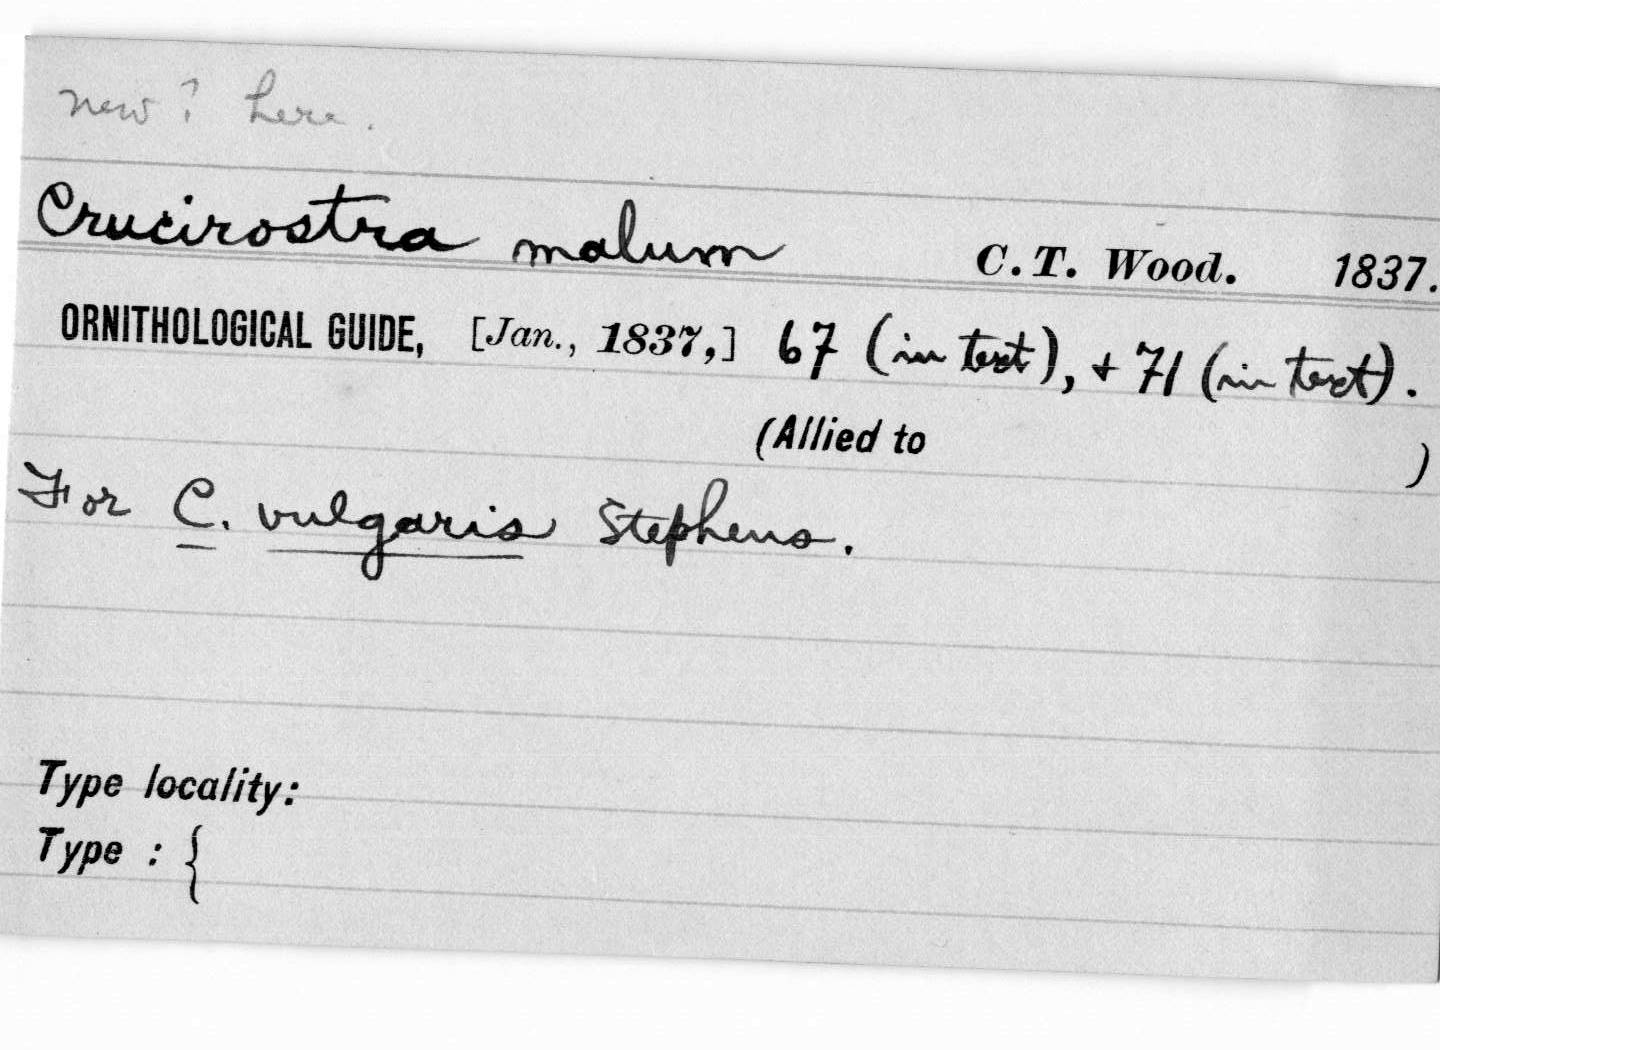 new? here.
Crucirostra malum C.T. Wood. 1837.
ORNITHOLOGICAL GUIDE, [Jan., 1837,] 67 (in text), + 71 (in text).
(Allied to )
For C. vulgaris Stephens.
Type locality:
Type : {